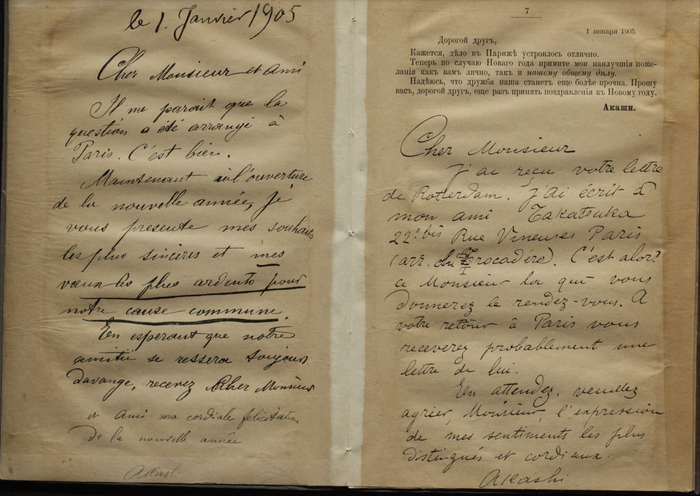 le 1. Janvier 1905
Cher Monsieur et ami
Il me parait que la
question a été arrangé à
Paris. C'est bien.
Maintenant à l'ouverture
de la nouvelle année, je
vous presente mes souhaits
les plus sincères et mes
vœux les plus ardents pour
notre cause commune.
En esperant que notre
amitié se ressera toujours
davange, recevez Cher Monsieur
et Ami ma cordiale félicitation
de la nouvelle année
Akashi
7
1 января 1905.
Дорогой другъ,
Кажется, дѣло въ Парижѣ устроилось отлично.
Теперь по случаю Новаго года примите мои наилучшія поже-
ланія какъ вамъ лично, такъ и нашему общему дѣлу.
Надѣюсь, что дружба наша станетъ еще болѣе прочна. Прошу
васъ, дорогой другъ, еще разъ принять поздравленія къ Новому году.
Акаши.
Cher Monsieur
j'ai reçu votre lettre
de Rotterdam. J'ai écrit à
mon ami Takatsuka
22 bis Rue Vineuses Paris
(arr. du Trocadero). C'est alors
ce Monsieur là qui vous
donnerez le rendez-vous. A
votre retour à Paris vous
receverez probablement une
lettre de lui.
En attendez, veuillez
agréer, Monsieur, l'expression
de mes sentiments les plus
distingués et cordiaux.
Akashi